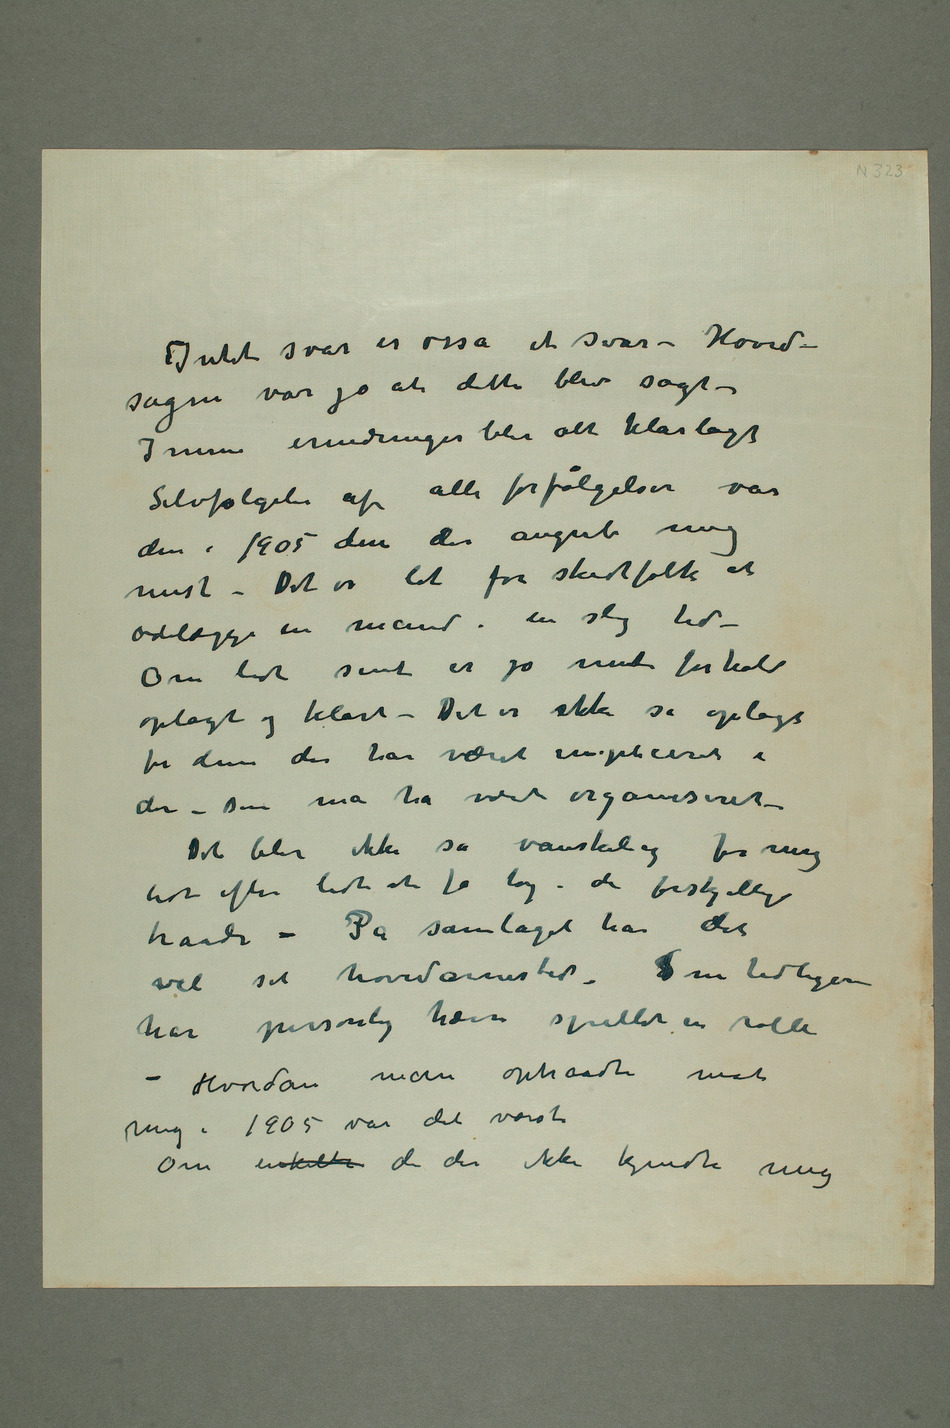 N 323
Intet svar er osså et svar – Hoved–
sagen var jo at dette blev sagt –
I mine erindringer blir alt klarlagt
Selvfølgelig af alle forfølgelser var
den i 1905 den der angreb mig
mest – Det er let for skidtfolk at
ødelægge en mand i en slig tid –
Om lidt sent er jo mit forhold
oplagt og klart – Det er ikke så oplagt
for dem der har været impliceret i
det – Den må ha vært organiseret –
Det blir ikke så vanskelig for mig
lidt efter lidt at få tag i de forskjellige
traade – På samlaget har det
vel sit hovedarnested –
har personlig hævn spillet en rolle
– Hvordan man optraadte mot
mig i 1905 var det værste
Om enkelte de der ikke kjendte mig